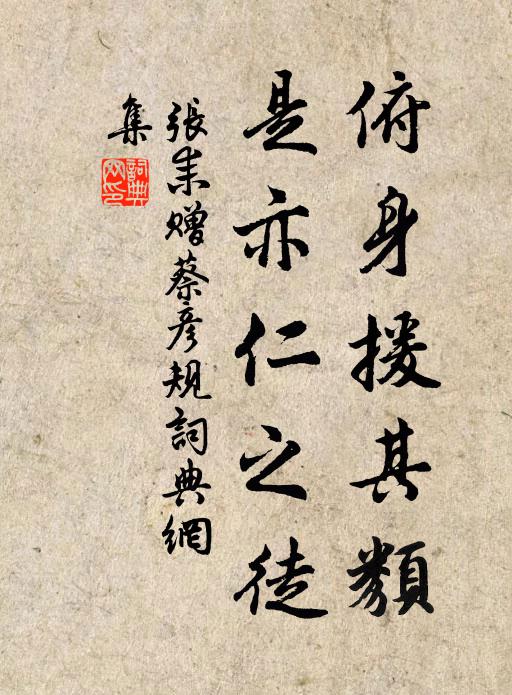 俯身援其類
是亦仁之徒
張耒贈蔡彦規詞典網
集
詞典
网印